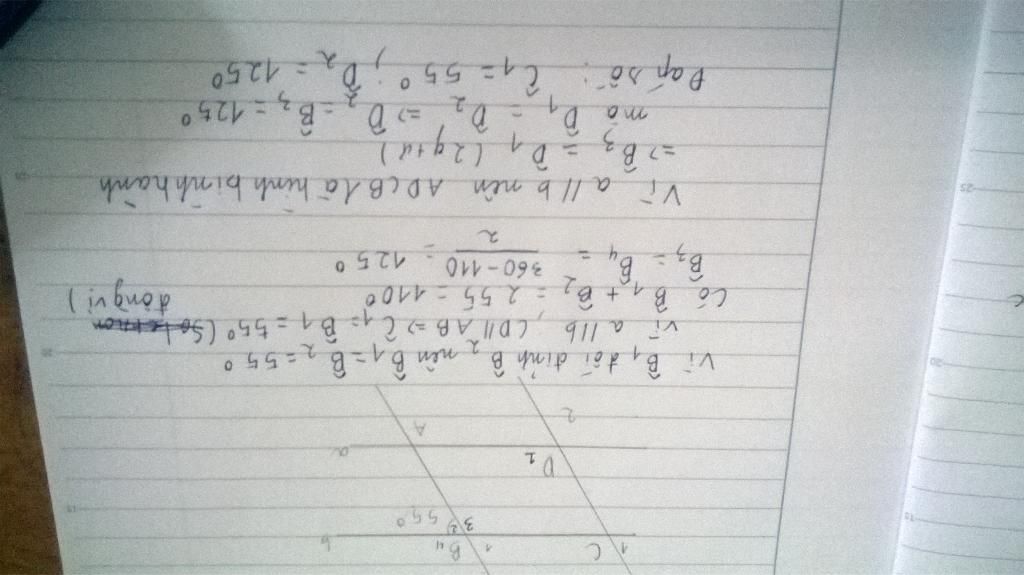 b
B 4
1
C
1
3 2
55°
a
D 1
A
2
Vì B̂1 đối đỉnh B̂2 nên B̂1 = B̂2 = 55°
Vì a // b, CD // AB => Ĉ1 = B̂1 = 55° (đồng vị)
Có B̂1 + B̂2 = 2 55 = 110°
B̂3 = B̂4 = 360-110 / 2 = 125°
Vì a // b nên ADCB là hình bình hành
=> B̂3 = D̂1 (2 g +/d)
mà D̂1 = D̂2 => D̂2 = B̂3 = 125°
Đáp số: Ĉ1 = 55°; D̂2 = 125°